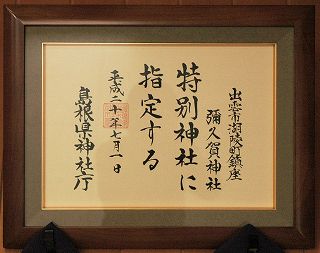 出雲市湖陵町鎮座
彌久賀神社
特別神社に
指定する
平成二十年七月一日
島根県神社庁